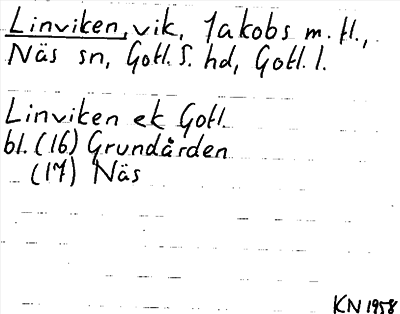 Linviken, vik, Jakobs m. fl.,
Näs sn, Gotl. S. hd, Gotl. l.
Linviken ek Gotl.
bl. (16) Grundården
(17) Näs
KN 1958